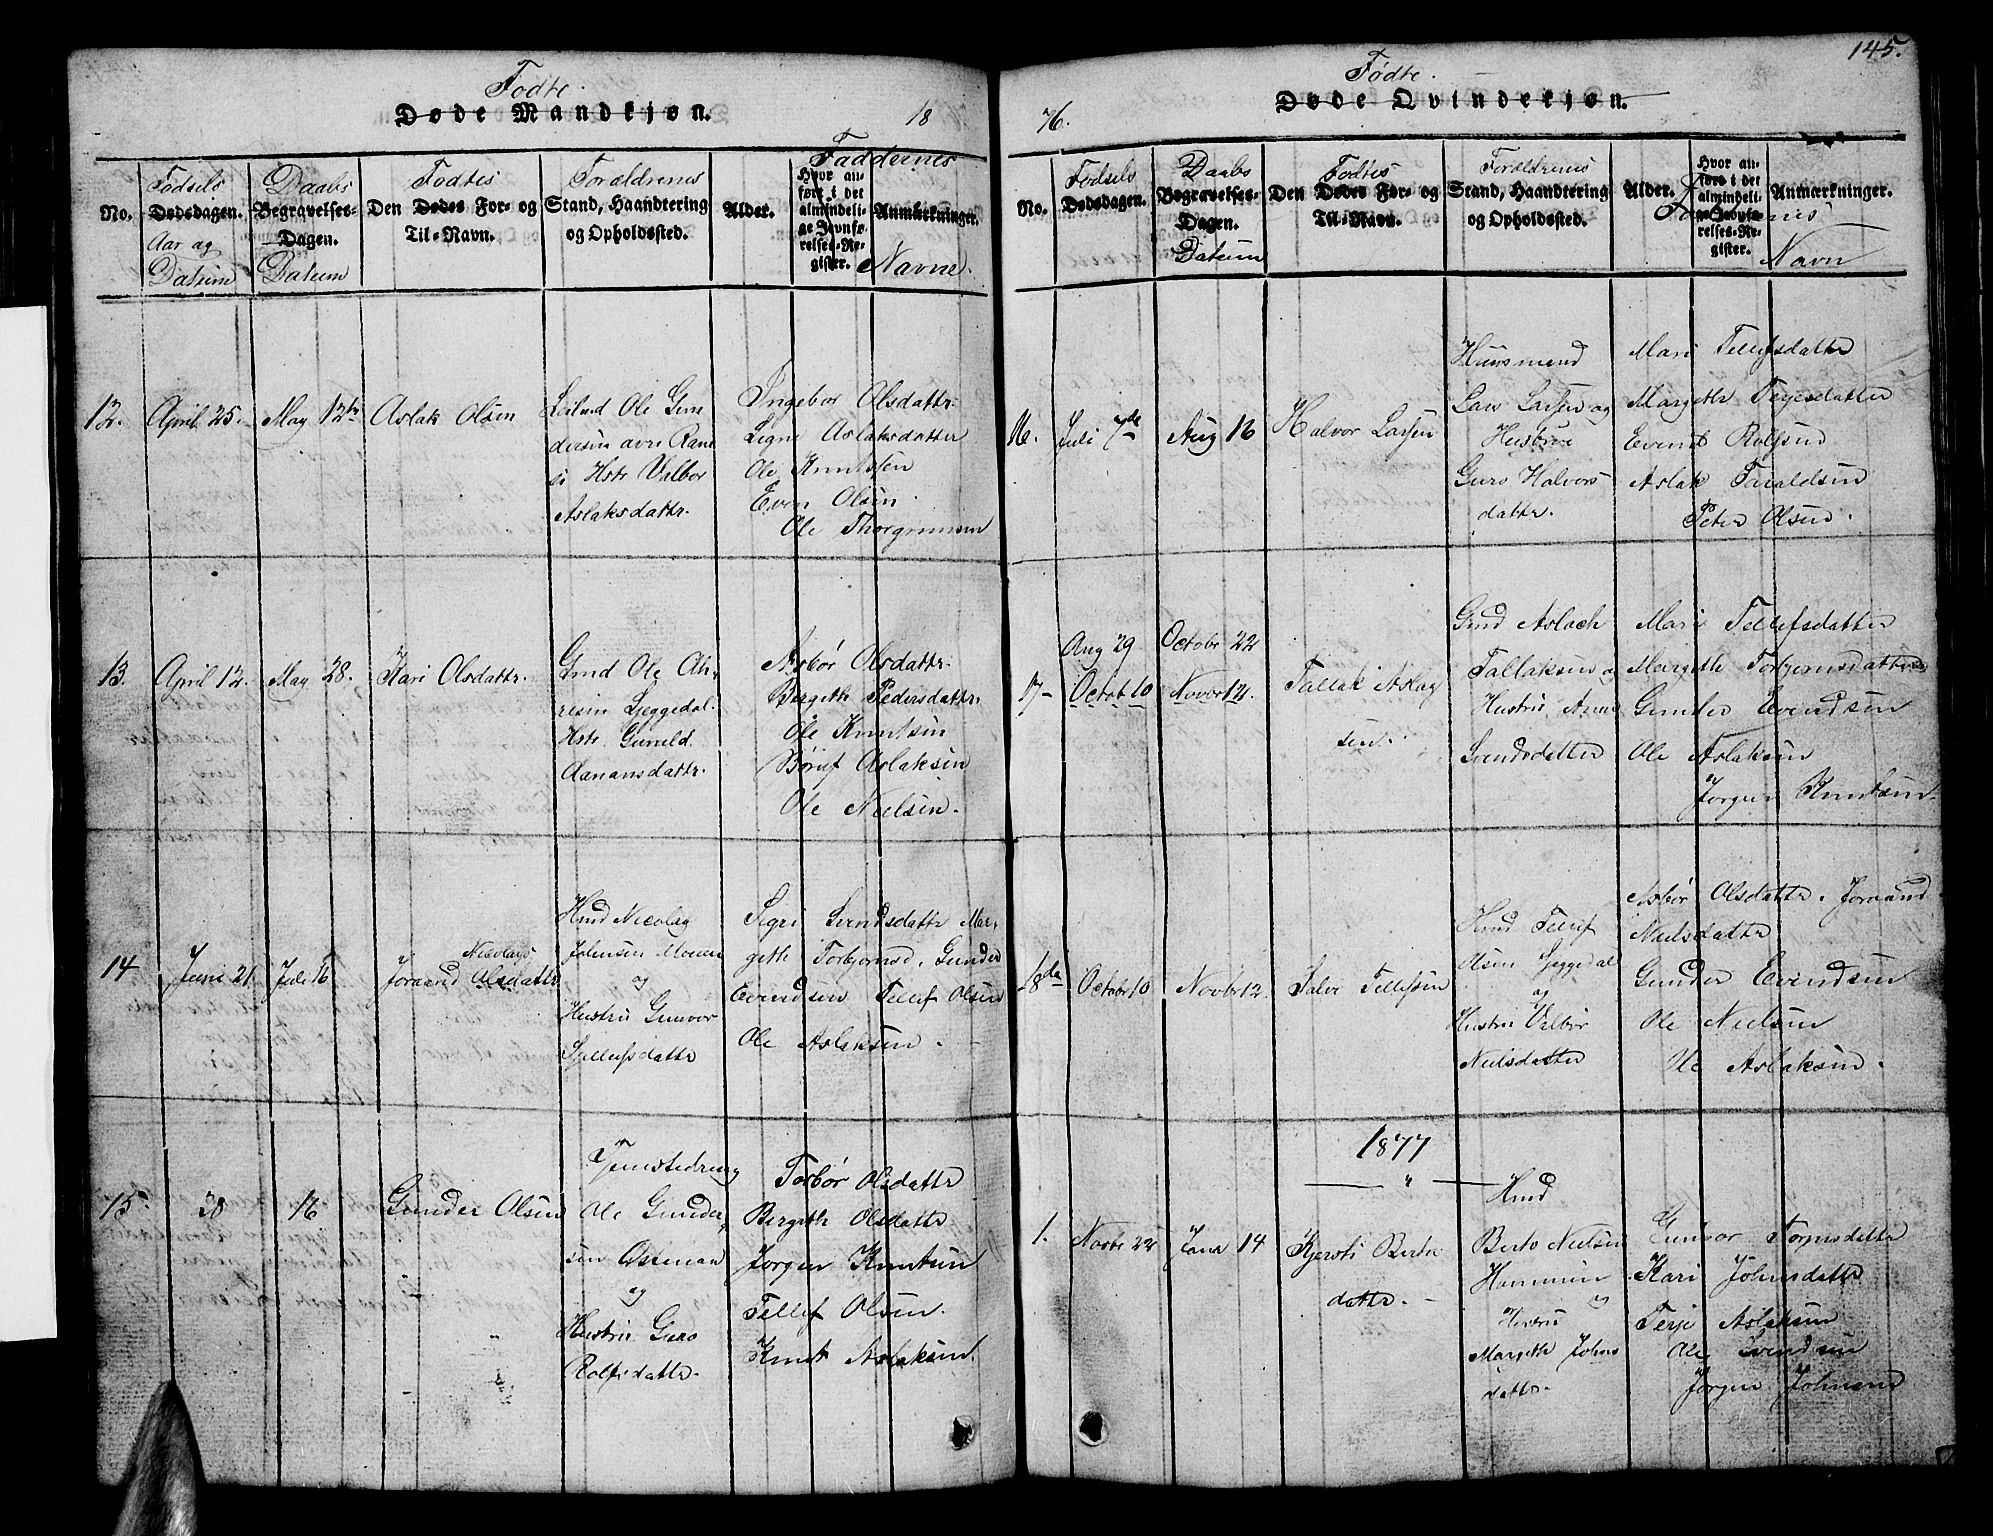 145.
Fødte.
Døde Mandkjøn.
18
No.
Fødsels
Dødsdagen.
Aar og
Datum
Daabs
Begravelses-
Dagen.
Datum
Fødtes
Den Dødes For- og
Til-Navn.
Forældrenes
Stand, Haandtering
og Opholdssted.
Alder.
Faddernes
Hvor an-
ført i det
almindeli-
ge Jevnfø-
relses-Re-
gister.
Anmærkninger.
Navne.
12.
April 25.
May 12te
Aslak Olsen
Leilnd Ole Gun
dersen
Hstr Valbor
Aslaksdattr.
Ingebor Olsdattr.
Signe Aslaksdatter
Ole Knutsen
Even Olsen.
Ole Thorgrimsen
13.
April 12.
May 28.
Kari Olsdattr.
Gmd Ole An-
resen Ljeggedal.
Hstr. Guneld
Aanansdattr.
Asbør Olsdattr.
Bergith Pedersdattr.
Ole Knutsen
Børuf Aslaksen
Ole Nielsen.
14
Juni 21
Juli 16
Nicolays
Joraand Olsdattr
Hmd Nicolay
Johnsen Moen
og
Hustru Gunvor
Tjellefsdattr
Sigri Svendsdattr Mar-
geth Torbjornsd. Gunder
Evendsen Tellef Olsen
Ole Aslaksen.
15.
20
16
Gunder Olsen
Tjenestedreng
Ole Gunder-
sen Osseman
og
Hustru Guro
Rolfsdattr.
Torbør Olsdattr
Bergith Olsdattr
Jørgen Knutsen
Tellef Olsen.
Knut Aslaksen.
Fødte.
Døde Qvindekjøn.
76.
No.
Fødsels
Dødsdagen.
Daabs
Begravelses-
Dagen.
Datum
Fødtes
Den Dødes For- og
Til-Navn.
Forældrenes
Stand, Haandtering
og Opholdssted.
Alder.
Hvor an-
ført i det
almindeli-
ge Jevnfø-
relses-Re-
gister.
Anmærkninger.
Faddernes
Navn
16.
Juli 7de
Aug 16
Halvor Larsen
Huusmand
Lars Larsen og
Hustrue
Guro Halvors
dattr.
Mari Tellefsdatter
Margeth Terjesdatter
Evend Rolfsen
Aslak Taraldsen
Peter Olsen.
17
Aug 29
Octobr 10
October 22
Novbr 12.
Tallak Aslag
sen.
Gmd Aslach
Tallaksen og
Hustru Anne
Svendsdatter
Mari Tellefsdatter
Margeth Torbjornsdatter
Gunder Evendsen
Ole Aslaksen
Jorgen Knutsen
18de
Octobr 10
Novbr 12.
Salve Tellefsen
Hmd Tellef
Olsen Ljeggedal
og
Hustru Valbør
Nielsdatter
Asbør Olsdattr. Joraand
Nielsdatter
Gunder Evendsen
Ole Nielsen
Ole Aslaksen.
1877
1.
Novbr 22
Janr 14
Kjersti Berte
dattr.
Hmd
Berto Nielsen
og
Hustru
Margith Johns
dattr.
Gunvor Torjusdatter
Kari Johnsdattr
Terje Aslaksen
Ole Evendsen
Jørgen Johnsen